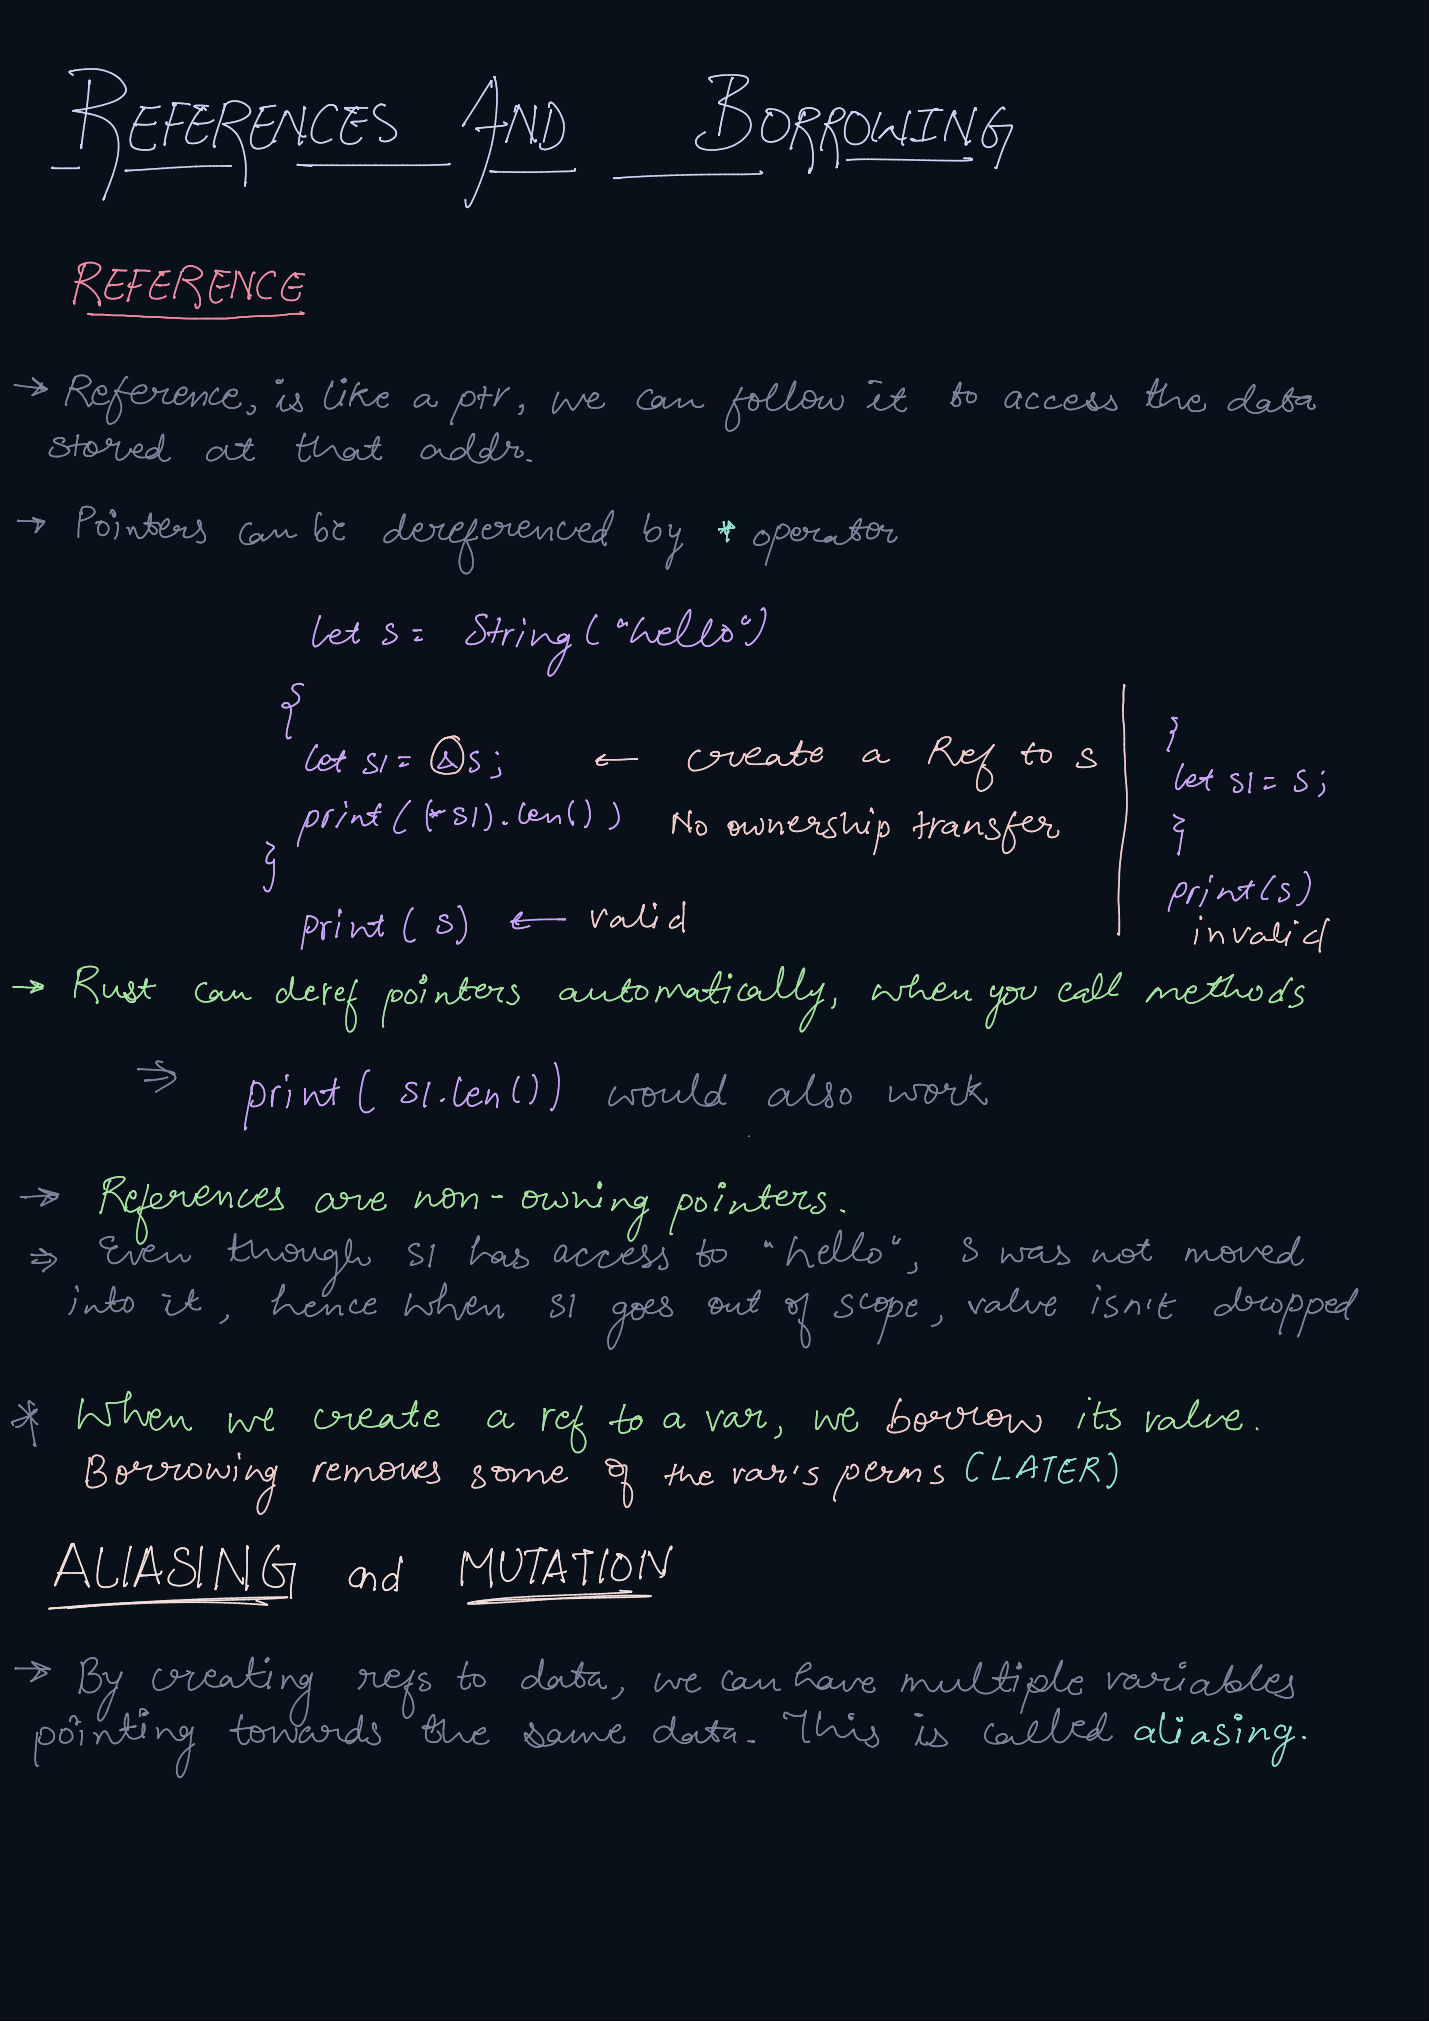 REFERENCES AND BORROWING
REFERENCE
→ Reference, is like a ptr, we can follow it to access the data
stored at that addr.
→ Pointers can be dereferenced by * operator
let s = String("hello")
{
let s1 = &s; ← create a Ref to s
print((*s1).len()) No ownership transfer
}
print(s) ← valid
}
let s1 = s;
}
print(s)
invalid
→ Rust can deref pointers automatically, when you call methods
⇒ print(s1.len()) would also work
→ References are non-owning pointers.
⇒ Even though s1 has access to "hello", s was not moved
into it, hence when s1 goes out of scope, value isn't dropped
* When we create a ref to a var, we borrow its value.
Borrowing removes some of the var's perms (LATER)
ALIASING and MUTATION
→ By creating refs to data, we can have multiple variables
pointing towards the same data. This is called aliasing.